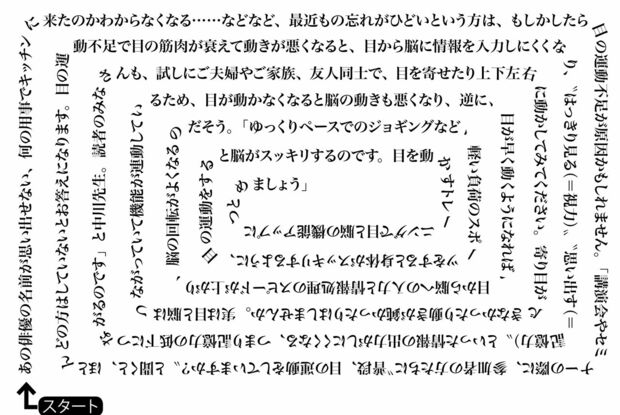 あの俳優の名前が思い出せない、何の用事でキッチンに
来たのかわからなくなる……などなど、最近もの忘れがひどいという方は、もしかしたら
目の運動不足が原因かもしれません。「講演会やセミ
ナーの際に、参加者の方たちに〝普段、目の運動をしていますか?〟と聞くと、ほとん
どの方はしていないとお答えになります。目の運
動不足で目の筋肉が衰えて動きが悪くなると、目から脳に情報を入力しにくくな
り、〝はっきり見る(=視力)〟〝思い出す(=
記憶力)〟といった情報の出力がしにくくなる、つまり記憶力の低下につな
がるのです」と中川先生。読者のみなさ
んも、試しにご夫婦やご家族、友人同士で、目を寄せたり上下左右
に動かしてみてください。寄り目が
できなかったり動きが鈍かったりはしませんか。実は目と脳はつ
ながっていて機能が連動してい
るため、目が動かなくなると脳の動きも悪くなり、逆に、
目が早く動くようになれば、
目から脳への入力と情報処理のスピードが上がり
、脳の回転がよくなるの
だそう。「ゆっくりペースでのジョギングなど、
軽い負荷のスポー
ツをすると身体がスッキリするように、
目の運動をする
と脳がスッキリするのです。目を動
かすトレー
ニングで目と脳の機能アップに
つとめ
ましょう」
スタート